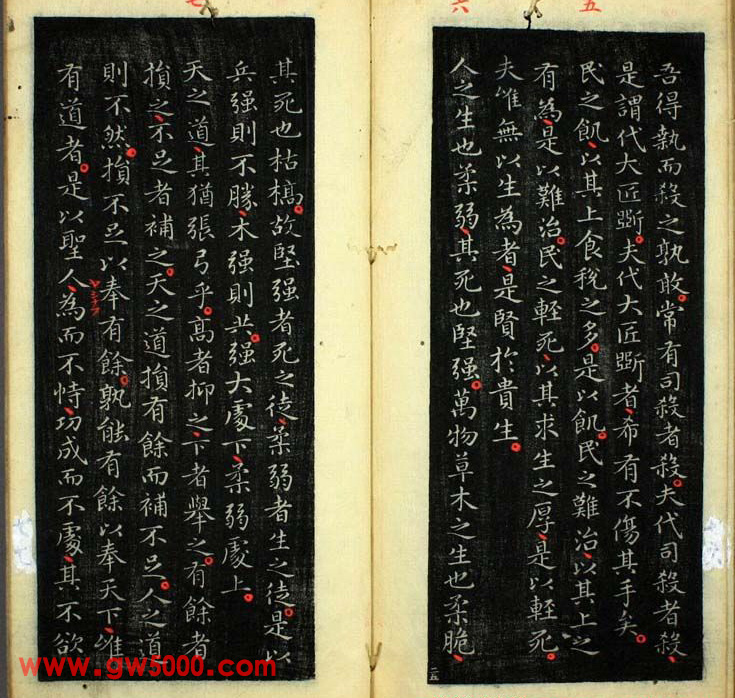 五
六
吾得執而殺之孰敢。常有司殺者殺。夫代司殺者殺、
是謂代大匠斲。夫代大匠斲者、希有不傷其手矣。
民之飢、以其上食稅之多。是以飢。民之難治、以其上之
有為、是以難治。民之輕死、以其求生之厚、是以輕死。
夫唯無以生為者、是賢於貴生。
人之生也柔弱、其死也堅强。萬物草木之生也柔脆、
二五
七
其死也枯槁。故堅强者死之徒、柔弱者生之徒。是以
兵强則不勝、木强則共。强大處下、柔弱處上。
天之道、其猶張弓乎。高者抑之、下者舉之。有餘者
損之、不足者補之。天之道損有餘而補不足。人之道
則不然、損不足以奉有餘。孰能有餘以奉天下、唯
有道者。是以聖人、為而不恃、功成而不處、其不欲
www.gw5000.com